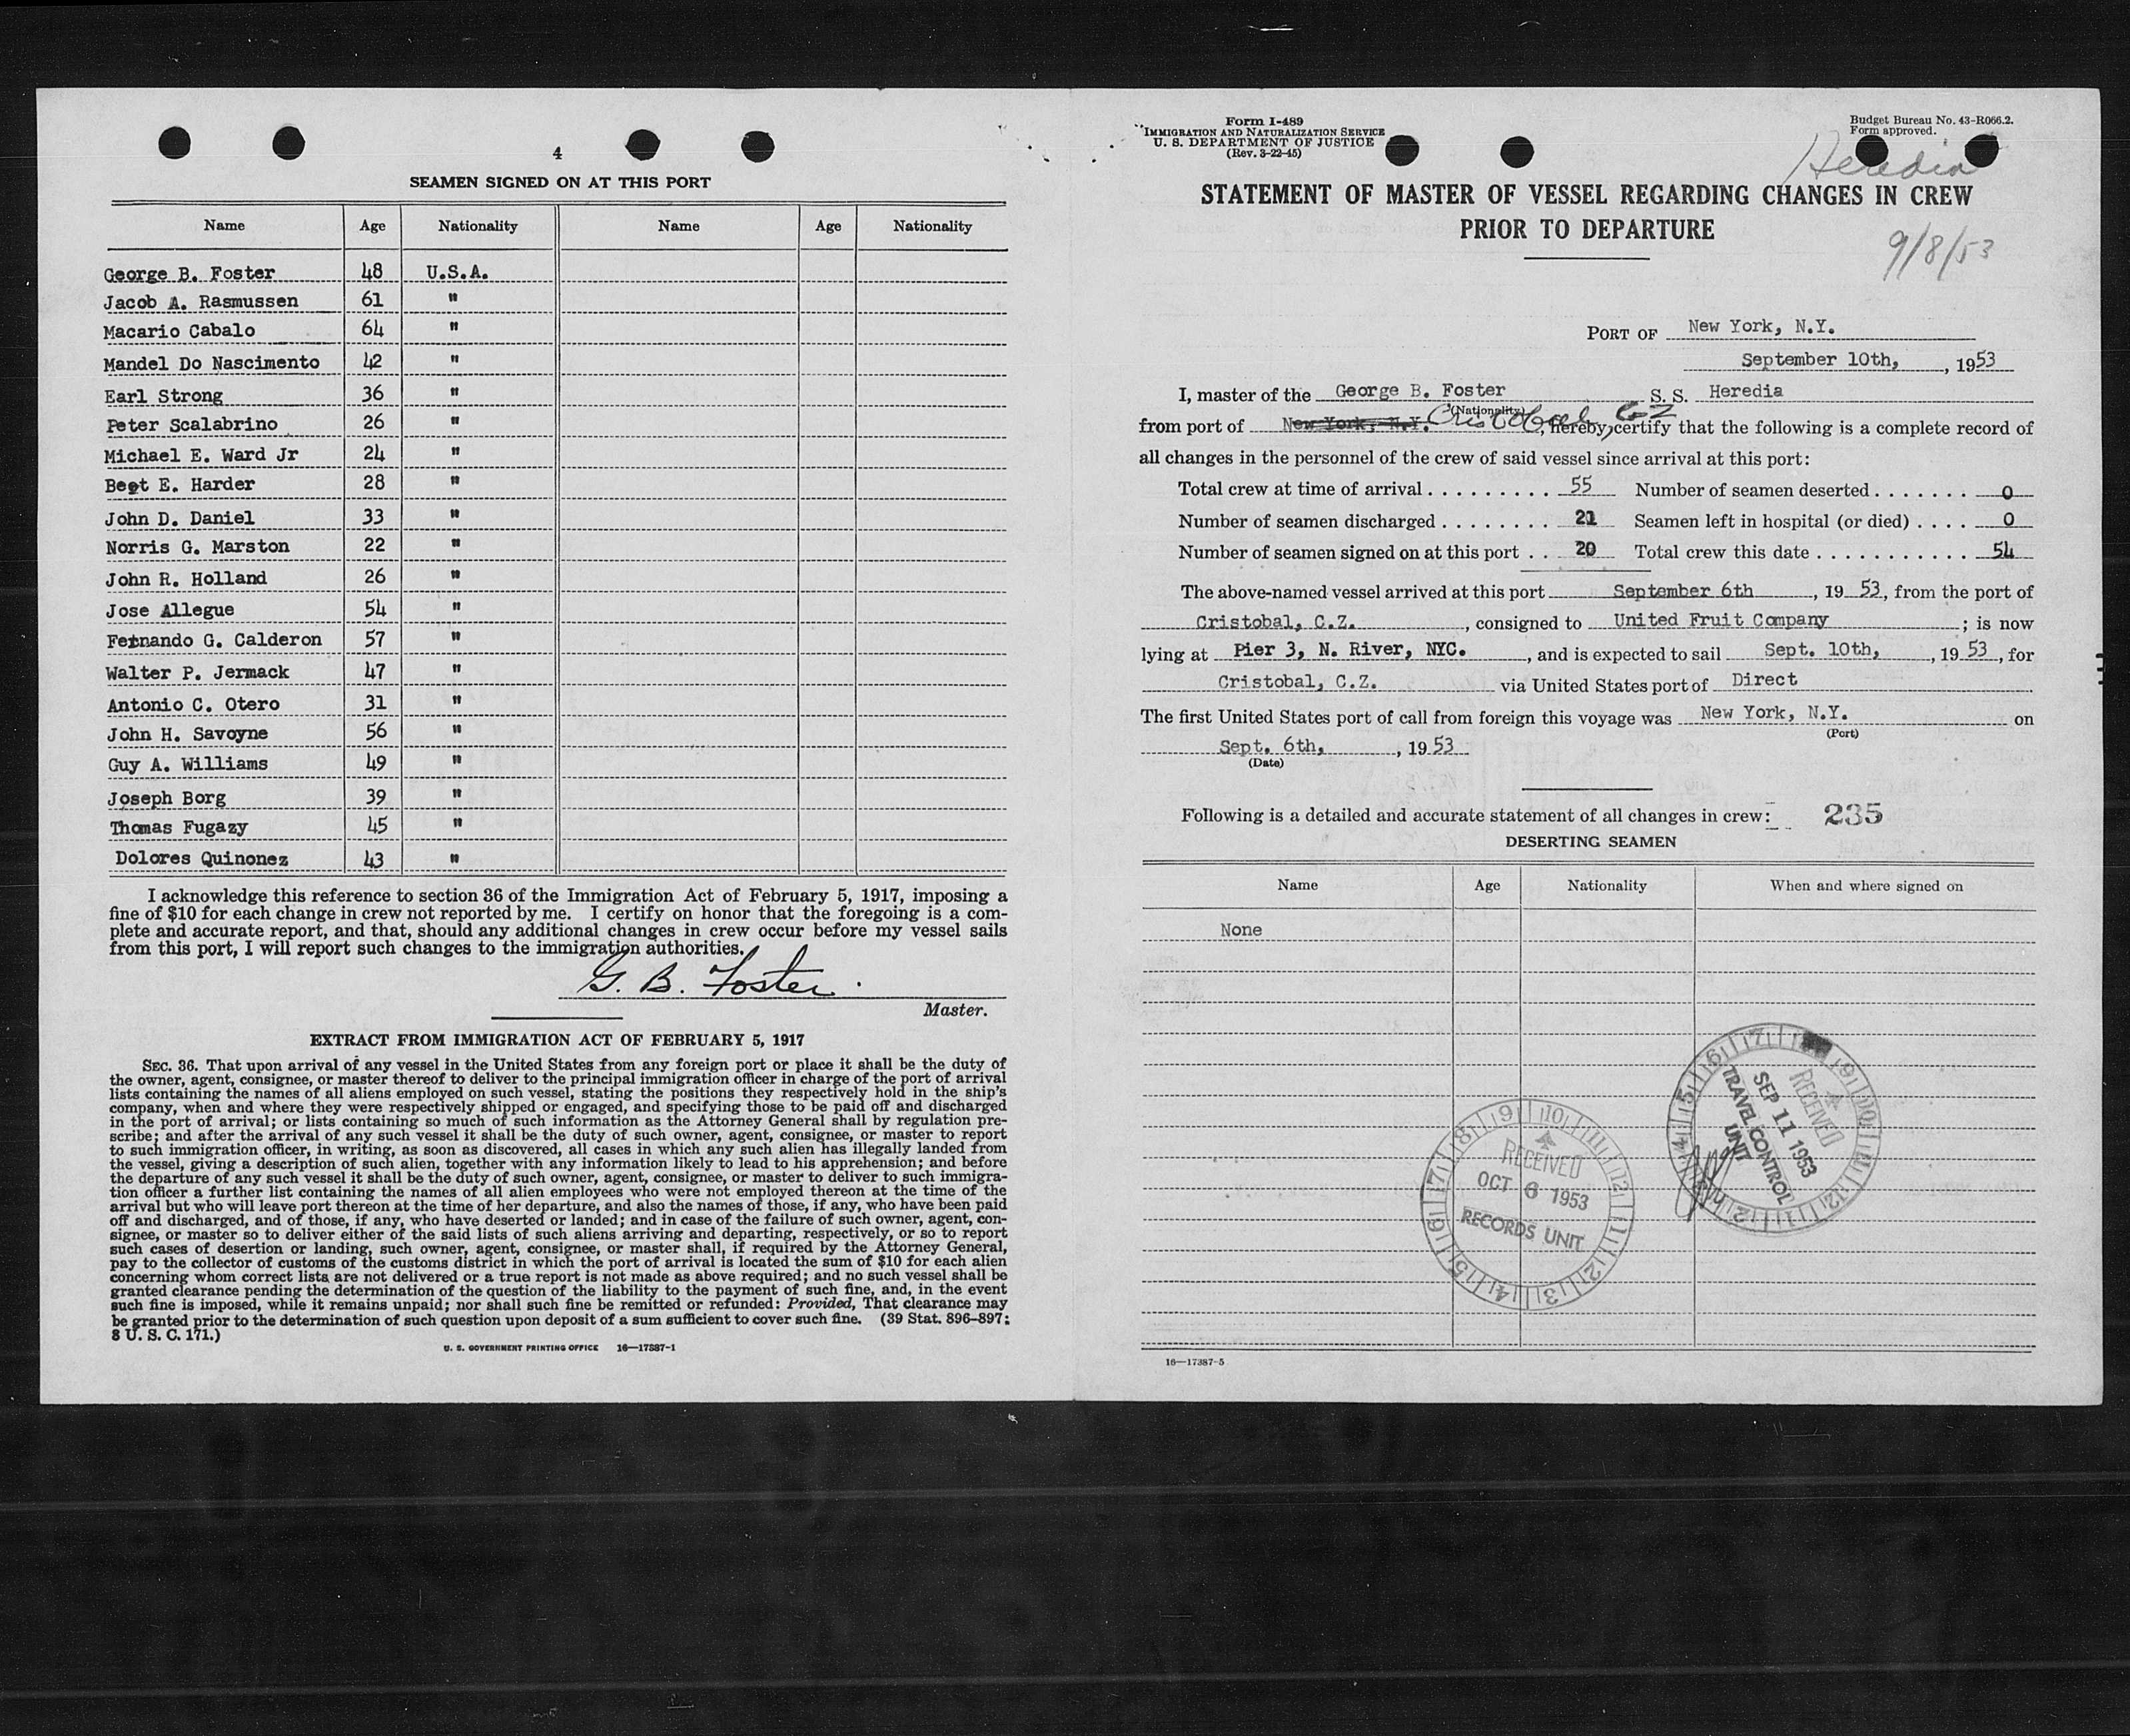 4
SEAMEN SIGNED ON AT THIS PORT
Name Age Nationality Name Age Nationality
George B. Foster 48 U.S.A.
Jacob A. Rasmussen 61 "
Macario Cabalo 64 "
Mandel Do Nascimento 42 "
Earl Strong 36 "
Peter Scalabrino 26 "
Michael E. Ward Jr 24 "
Beet E. Harder 28 "
John D. Daniel 33 "
Norris G. Marston 22 "
John R. Holland 26 "
Jose Allegue 54 "
Fernando G. Calderon 57 "
Walter P. Jermack 47 "
Antonio C. Otero 31 "
John H. Savoyne 56 "
Guy A. Williams 49 "
Joseph Borg 39 "
Thomas Fugazy 45 "
Dolores Quinonez 43 "
I acknowledge this reference to section 36 of the Immigration Act of February 5, 1917, imposing a
fine of $10 for each change in crew not reported by me. I certify on honor that the foregoing is a com-
plete and accurate report, and that, should any additional changes in crew occur before my vessel sails
from this port, I will report such changes to the immigration authorities.
G. B. Foster
Master.
EXTRACT FROM IMMIGRATION ACT OF FEBRUARY 5, 1917
SEC. 36. That upon arrival of any vessel in the United States from any foreign port or place it shall be the duty of
the owner, agent, consignee, or master thereof to deliver to the principal immigration officer in charge of the port of arrival
lists containing the names of all aliens employed on such vessel, stating the positions they respectively hold in the ship's
company, when and where they were respectively shipped or engaged, and specifying those to be paid off and discharged
in the port of arrival; or lists containing so much of such information as the Attorney General shall by regulation pre-
scribe; and after the arrival of any such vessel it shall be the duty of such owner, agent, consignee, or master to report
to such immigration officer, in writing, as soon as discovered, all cases in which any such alien has illegally landed from
the vessel, giving a description of such alien, together with any information likely to lead to his apprehension; and before
the departure of any such vessel it shall be the duty of such owner, agent, consignee, or master to deliver to such immigra-
tion officer a further list containing the names of all alien employees who were not employed thereon at the time of the
arrival but who will leave port thereon at the time of her departure, and also the names of those, if any, who have been paid
off and discharged, and of those, if any, who have deserted or landed; and in case of the failure of such owner, agent, con-
signee, or master so to deliver either of the said lists of such aliens arriving and departing, respectively, or so to report
such cases of desertion or landing, such owner, agent, consignee, or master shall, if required by the Attorney General,
pay to the collector of customs of the customs district in which the port of arrival is located the sum of $10 for each alien
concerning whom correct lists are not delivered or a true report is not made as above required; and no such vessel shall be
granted clearance pending the determination of the question of the liability to the payment of such fine, and, in the event
such fine is imposed, while it remains unpaid; nor shall such fine be remitted or refunded: Provided, That clearance may
be granted prior to the determination of such question upon deposit of a sum sufficient to cover such fine. (39 Stat. 896-897;
8 U. S. C. 171.)
U. S. GOVERNMENT PRINTING OFFICE 16—17387-1
Form I-489
IMMIGRATION AND NATURALIZATION SERVICE
U. S. DEPARTMENT OF JUSTICE
(Rev. 3-22-45)
Budget Bureau No. 43-R066.2.
Form approved.
Heredia
STATEMENT OF MASTER OF VESSEL REGARDING CHANGES IN CREW
PRIOR TO DEPARTURE
9/8/53
PORT OF New York, N.Y.
September 10th, , 1953
I, master of the George B. Foster S. S. Heredia
(Nationality)
from port of New York, N.Y. Cristobal, CZ , hereby certify that the following is a complete record of
all changes in the personnel of the crew of said vessel since arrival at this port:
Total crew at time of arrival . . . . . . . . . 55 Number of seamen deserted . . . . . . . 0
Number of seamen discharged . . . . . . . . 21 Seamen left in hospital (or died) . . . . 0
Number of seamen signed on at this port . . 20 Total crew this date . . . . . . . . . . . 54
The above-named vessel arrived at this port September 6th , 19 53, from the port of
Cristobal, C.Z. , consigned to United Fruit Company ; is now
lying at Pier 3, N. River, NYC. , and is expected to sail Sept. 10th, , 19 53 , for
Cristobal, C.Z. via United States port of Direct
The first United States port of call from foreign this voyage was New York, N.Y. on
(Port)
Sept. 6th, , 19 53
(Date)
Following is a detailed and accurate statement of all changes in crew: 235
DESERTING SEAMEN
Name Age Nationality When and where signed on
None
RECEIVED
SEP 11 1953
TRAVEL CONTROL
UNIT
RECEIVED
OCT 6 1953
RECORDS UNIT
16—17387-5